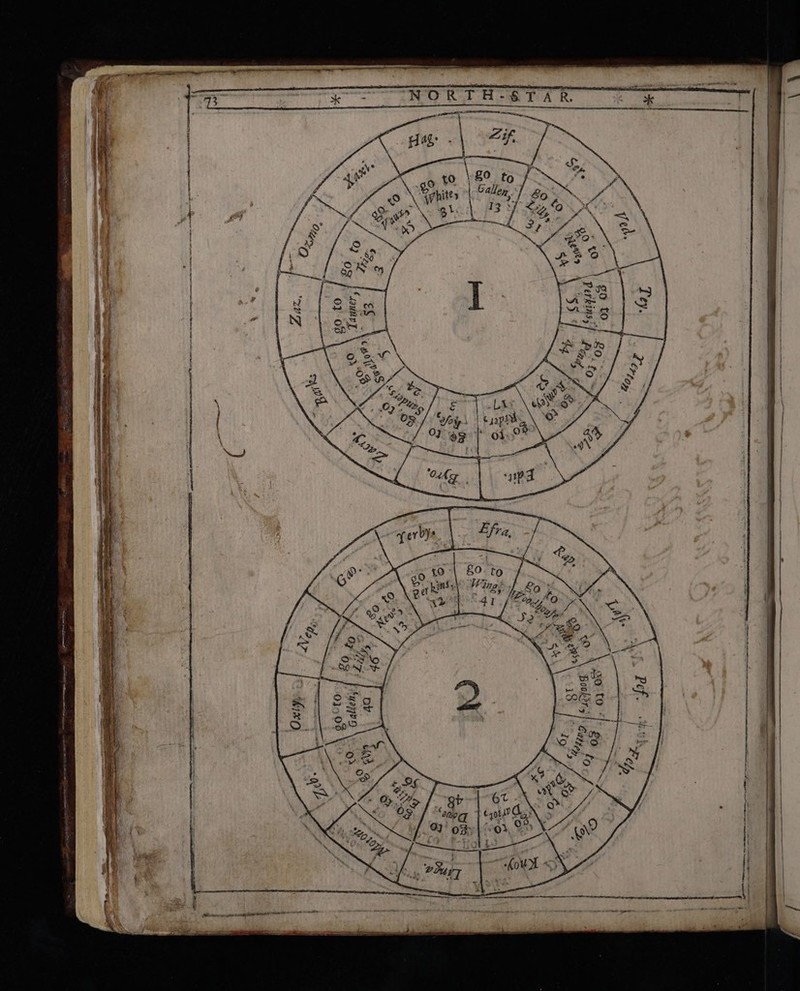 73 * NORTH-STAR. *
Zif.
go to
Gallen,
13
Ser.
go to
Lilly,
31
Ved.
go to
Neves
54
Tey.
go to
Perkins,
55
Terton
go to
Pond,
44
go to
52
Edit.
go to
17
Byro.
go to
3
Zacry.
go to
Sanders,
24
Barke.
go to
Swallow,
5
Zaz.
go to
Tanner,
53
Ozmo.
go to
Trig,
3
Yaxi.
go to
Vaux,
45
Hag.
go to
White,
31
1
Efra.
go to
Wing,
41
Rap.
go to
Woodhouse
52
Laf.
go to
Andrews,
54
Pef.
go to
Booker,
18
Felp.
go to
Gallen,
19
Gloy.
go to
Dades
54
Knoy.
go to
29
Linga.
go to
Dove,
48
Moron.
go to
56
Zeb.
go to
5
Oxiy.
go to
Gallen,
49
Nep.
go to
Lilly,
46
Gav.
go to
Neve,
13
Yerby.
go to
Perkins,
12
2